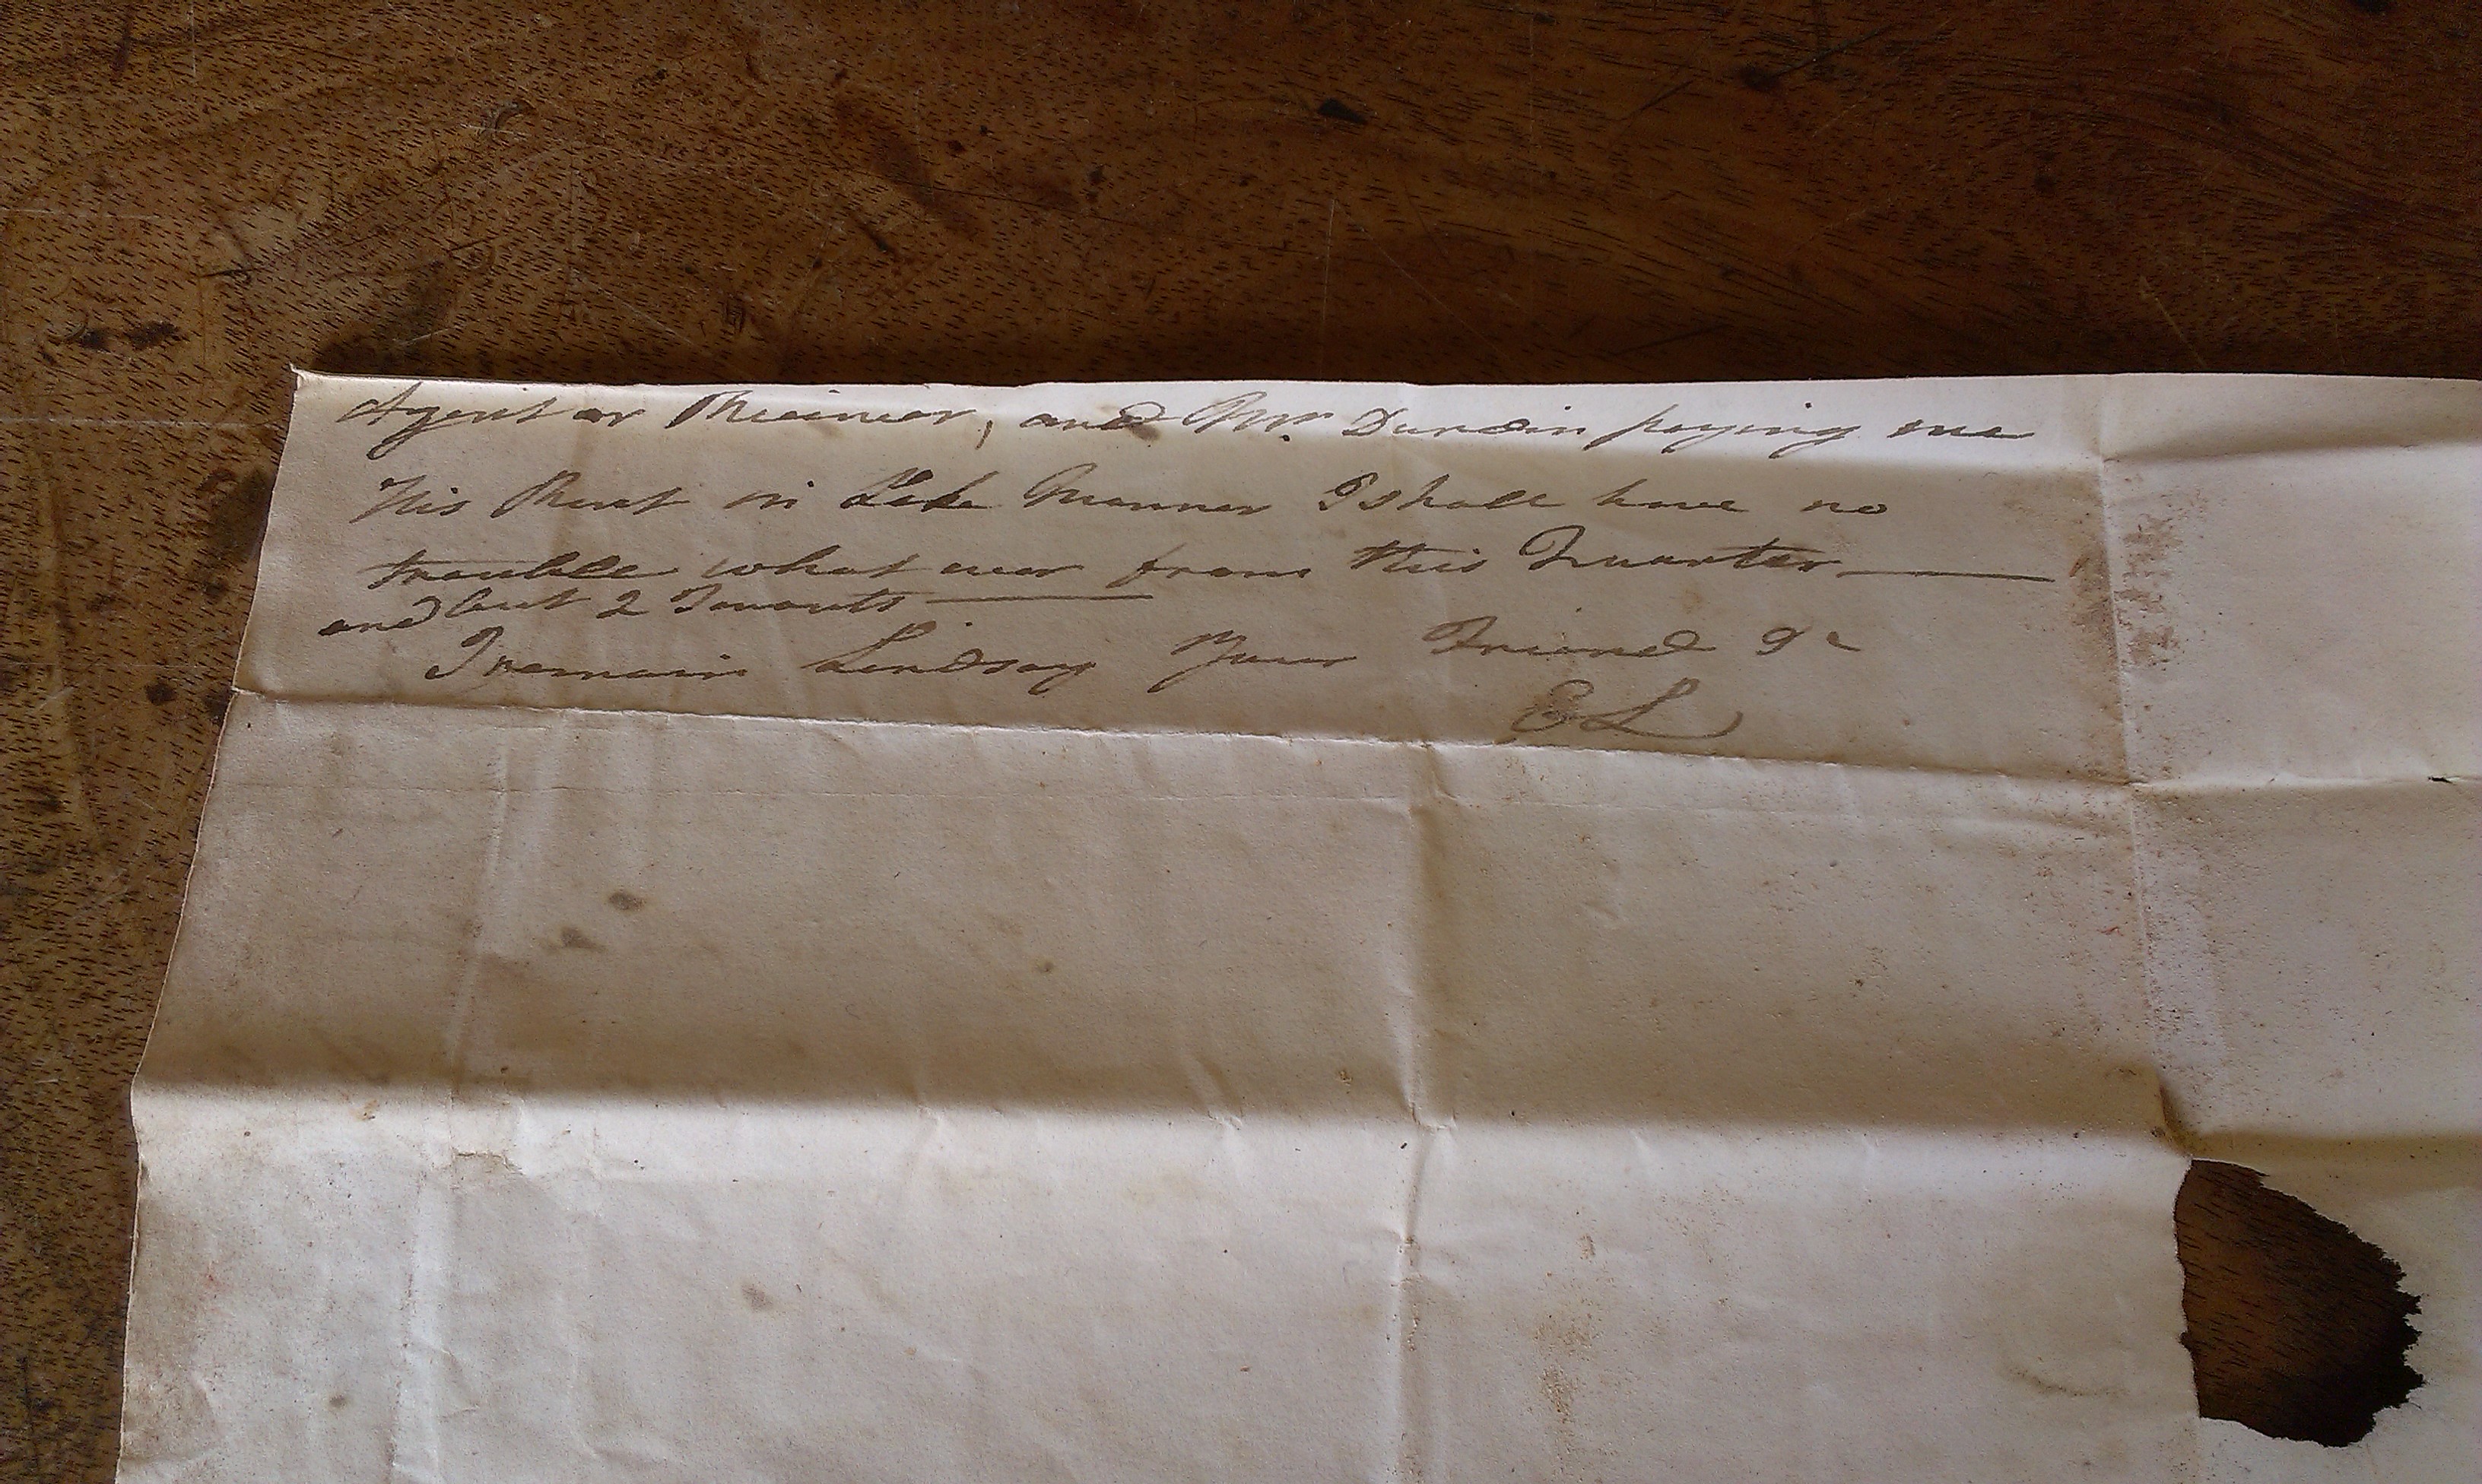 Agent or Receiver, and Mr. Durdin paying me
His Rent in Like Manner I shall have no
trouble what ever from this Quarter
and but 2 Tenants
I remain Lindsay Your Friend &c
EL